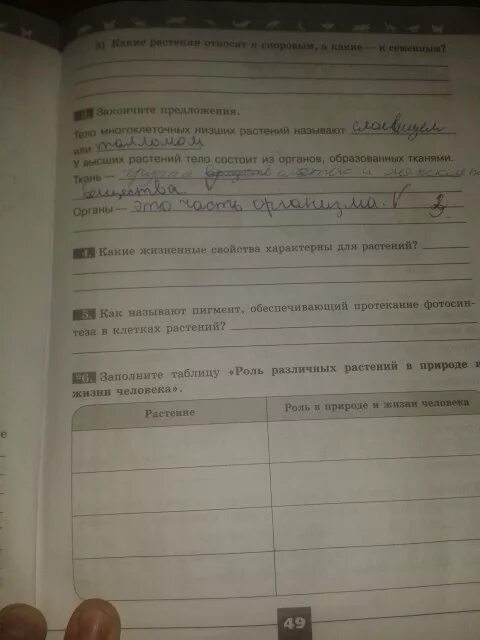 в) Какие растения относят к споровым, а какие — к семенным?
3. Закончите предложения.
Тело многоклеточных низших растений называют слоевищем
или талломом
У высших растений тело состоит из органов, образованных тканями.
Ткань — группа клеток и межклет
вещества
Органы — это часть организма. V 3
4. Какие жизненные свойства характерны для растений?
5. Как называют пигмент, обеспечивающий протекание фотосин-
теза в клетках растений?
6. Заполните таблицу «Роль различных растений в природе и
жизни человека».
Растение Роль в природе и жизни человека
49